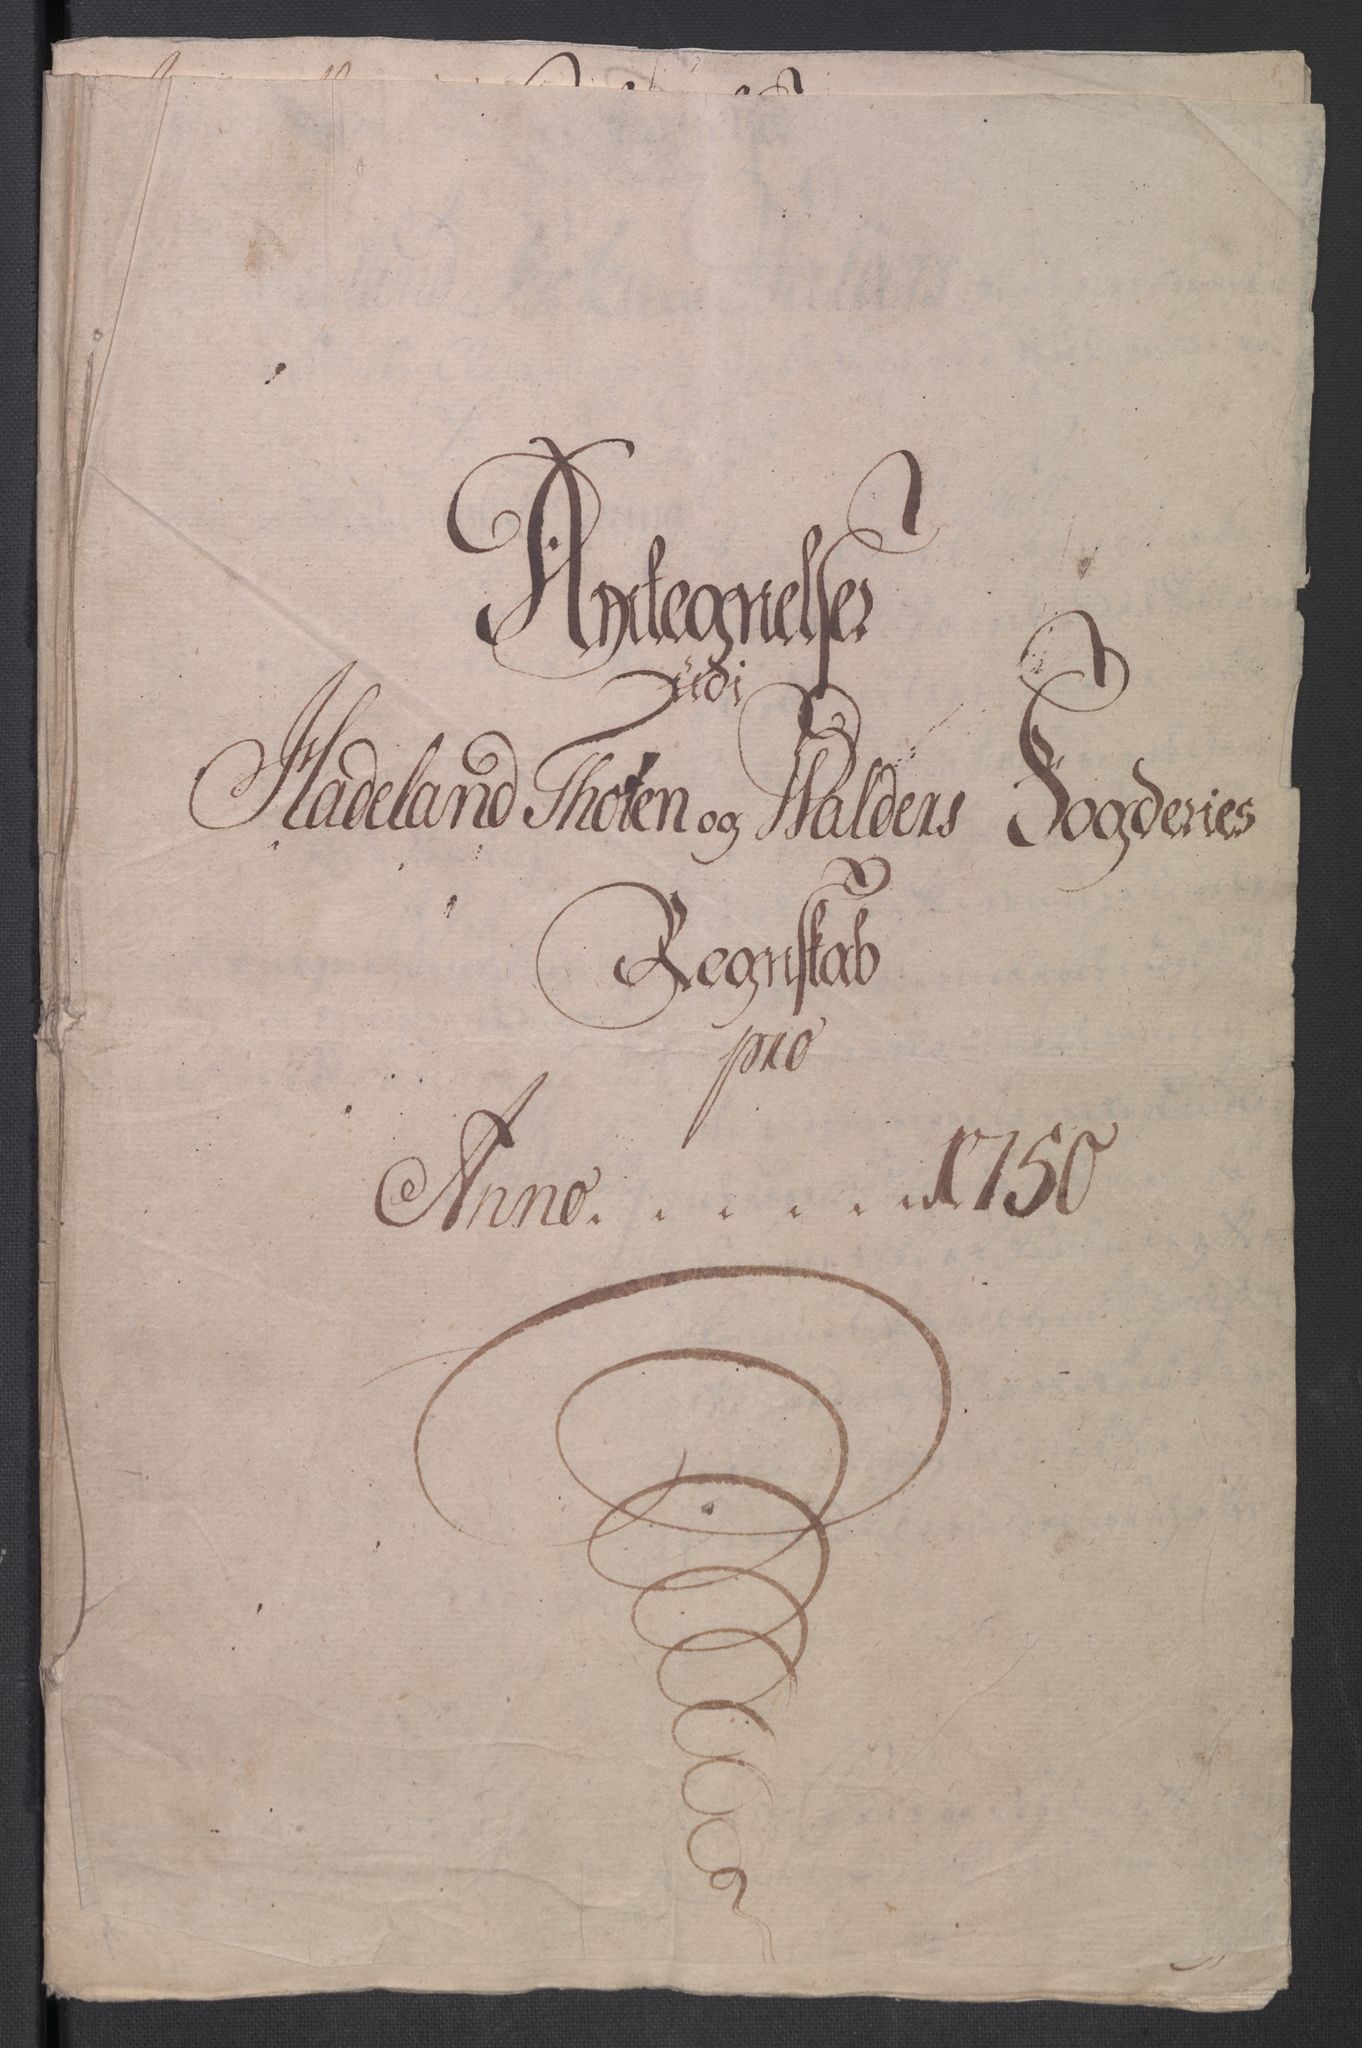 Antegnelser
udi
Hadeland Thoten og Walders Fogderies
Regnskab
pro
Anno. . . . . . 1750